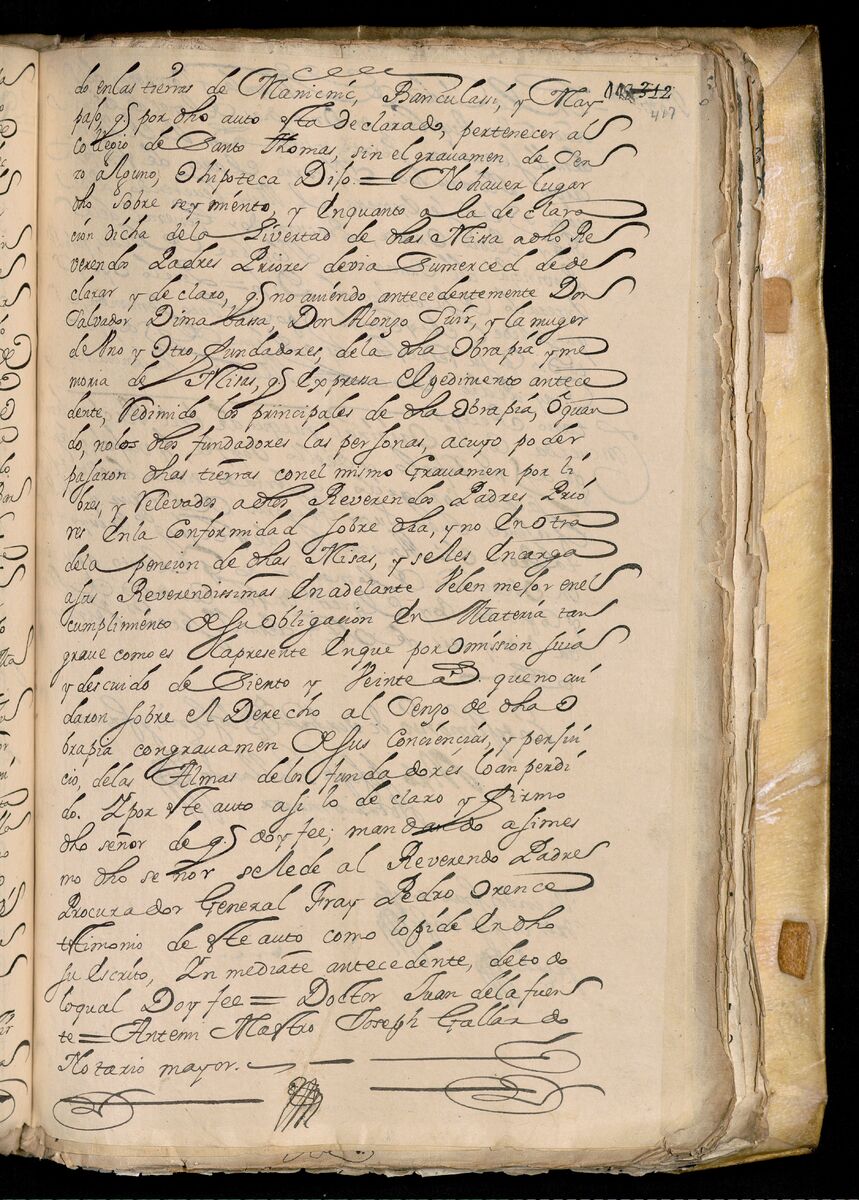 do enlas tierras de Manicnic, Banculassi, y May
pajo, q̃ por dho auto esta declarado, pertenecer al
Colegio de Santo Thomas, sin el gravamen de Sen
zo alguno, O hipoteca Dijo. = No haver lugar
dho Sobre seymiento, y Enquanto a la de clara
cion dicha dela Livertad de dhas Missa a dho Re
verendos Padres Priores devia Sumerced de de
clarar y de claro, q̃ no aviendo antecedentemente Don
Salvador Dimabassa, Don Alonzo Suri, y la muger
de Uno y Otro, fundadores, de la dha Obrapia y me
moria de Misas, q̃ Expressa el pedimento antece
dente, Redimido los principales de dha Obrapia, O quan
do, nolos dhos fundadores las personas, acuyo poder
pasaron dhas tierras con el mismo Gravamen por li
bres, y Relevados a dhos Reverendos Padres Prio
res En la Conformidad sobre dha, y no En otra
dela pencion de dhas Misas, y seles Encarga
asus Reverendissimas En adelante Velen mejor en el
cumplimiento de su Obligacion En Materia tan
grave como es la presente En que por Omission suia
y descuido de Siento y Veinte as. que no cui
daron sobre el Derecho al Senzo de dha O
brapia con gravamen de sus Conciencias, y perjui
cio, delas Almas delos fundadores lo an perdi
do. Y por este auto asi lo de claro y firmo
dho señor de q̃ doy fee; mandando asimes
mo dho señor se le de al Reverendo Padre
Procurador General Fray Pedro Orence
testimonio de este auto como lo pide En dho
su Escrito, Yn mediate antecedente, de to do
lo qual Doy fee = Doctor Juan dela fuen
te = Antemi Maestro Joseph Gallardo
Notario mayor.
312
417